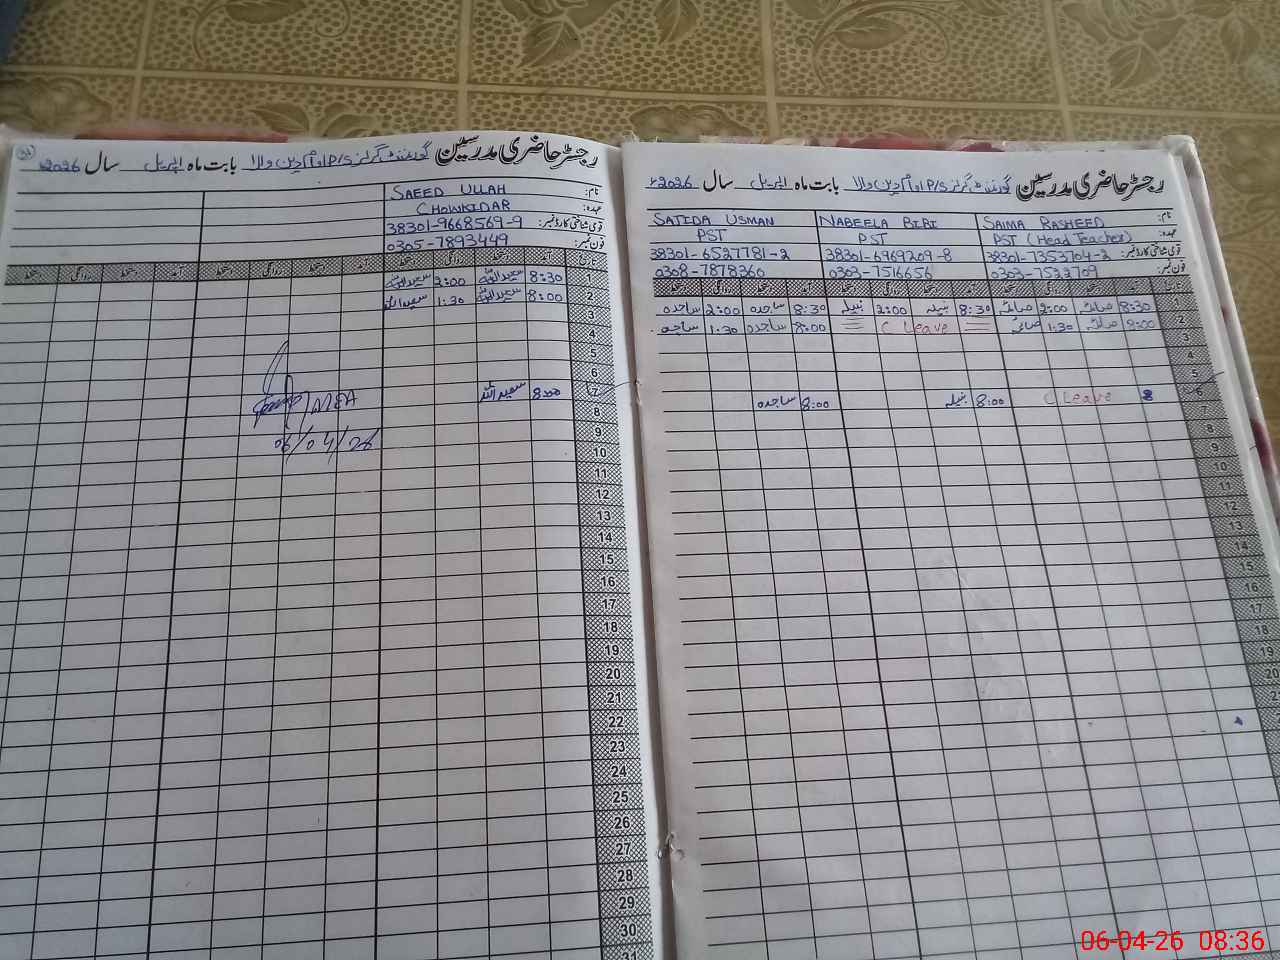 رجسٹر حاضری مدرسین گورنمنٹ گرلز P/S اوام دین والا بابت ماہ اپریل سال 2026ء
نام: SAEED ULLAH
عہدہ: CHOWKIDAR
قومی شناختی کارڈ نمبر: 38301-9668569-9
فون نمبر: 0305-7893449
تاریخ آمد دستخط روانگی دستخط آمد دستخط روانگی دستخط آمد دستخط روانگی دستخط
8:30 سعید اللہ 2:00 سعید اللہ
2 8:00 سعید اللہ 1:30 سعید اللہ
3
4
5
6
7 8:00 سعید اللہ
AEA
8
06/04/26
9
10
11
12
13
14
15
16
17
18
19
20
21
22
23
24
25
26
27
28
29
30
31
رجسٹر حاضری مدرسین گورنمنٹ گرلز P/S اوام دین والا بابت ماہ اپریل سال 2026ء
نام: SAIMA RASHEED NABEELA BIBI SAJIDA USMAN
عہدہ: PST (Head Teacher) PST PST
قومی شناختی کارڈ نمبر: 38301-7353704-2 38301-6969209-8 38301-6527781-2
فون نمبر: 0303-7522709 0303-7516656 0308-7878360
تاریخ آمد دستخط روانگی دستخط آمد دستخط روانگی دستخط آمد دستخط روانگی دستخط
8:30 صائمہ 2:00 صائمہ 8:30 نبیلہ 2:00 نبیلہ 8:30 ساجدہ 2:00 ساجدہ
2 8:00 صائمہ 1:30 صائمہ C Leave 8:00 ساجدہ 1:30 ساجدہ
3
4
5
6 8 C Leave 8:00 نبیلہ 8:00 ساجدہ
7
8
9
10
11
12
13
14
15
16
17
18
19
20
06-04-26 08:36